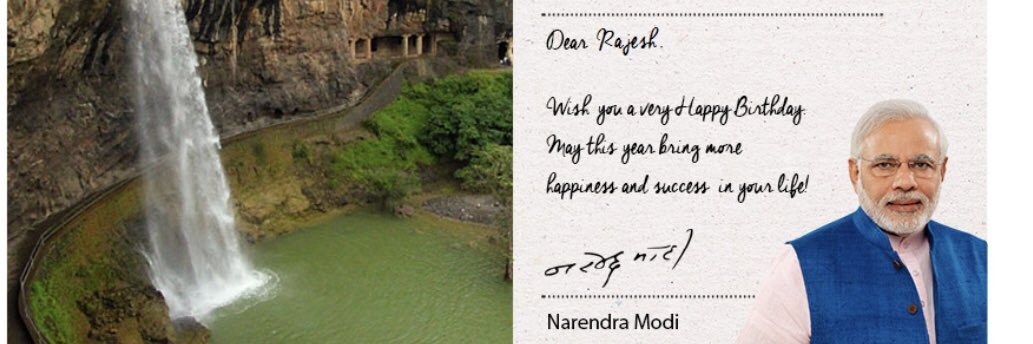 Dear Rajesh,
Wish you a very Happy Birthday.
May this year bring more
happiness and success in your life!
नरेन्द्र मोदी
Narendra Modi